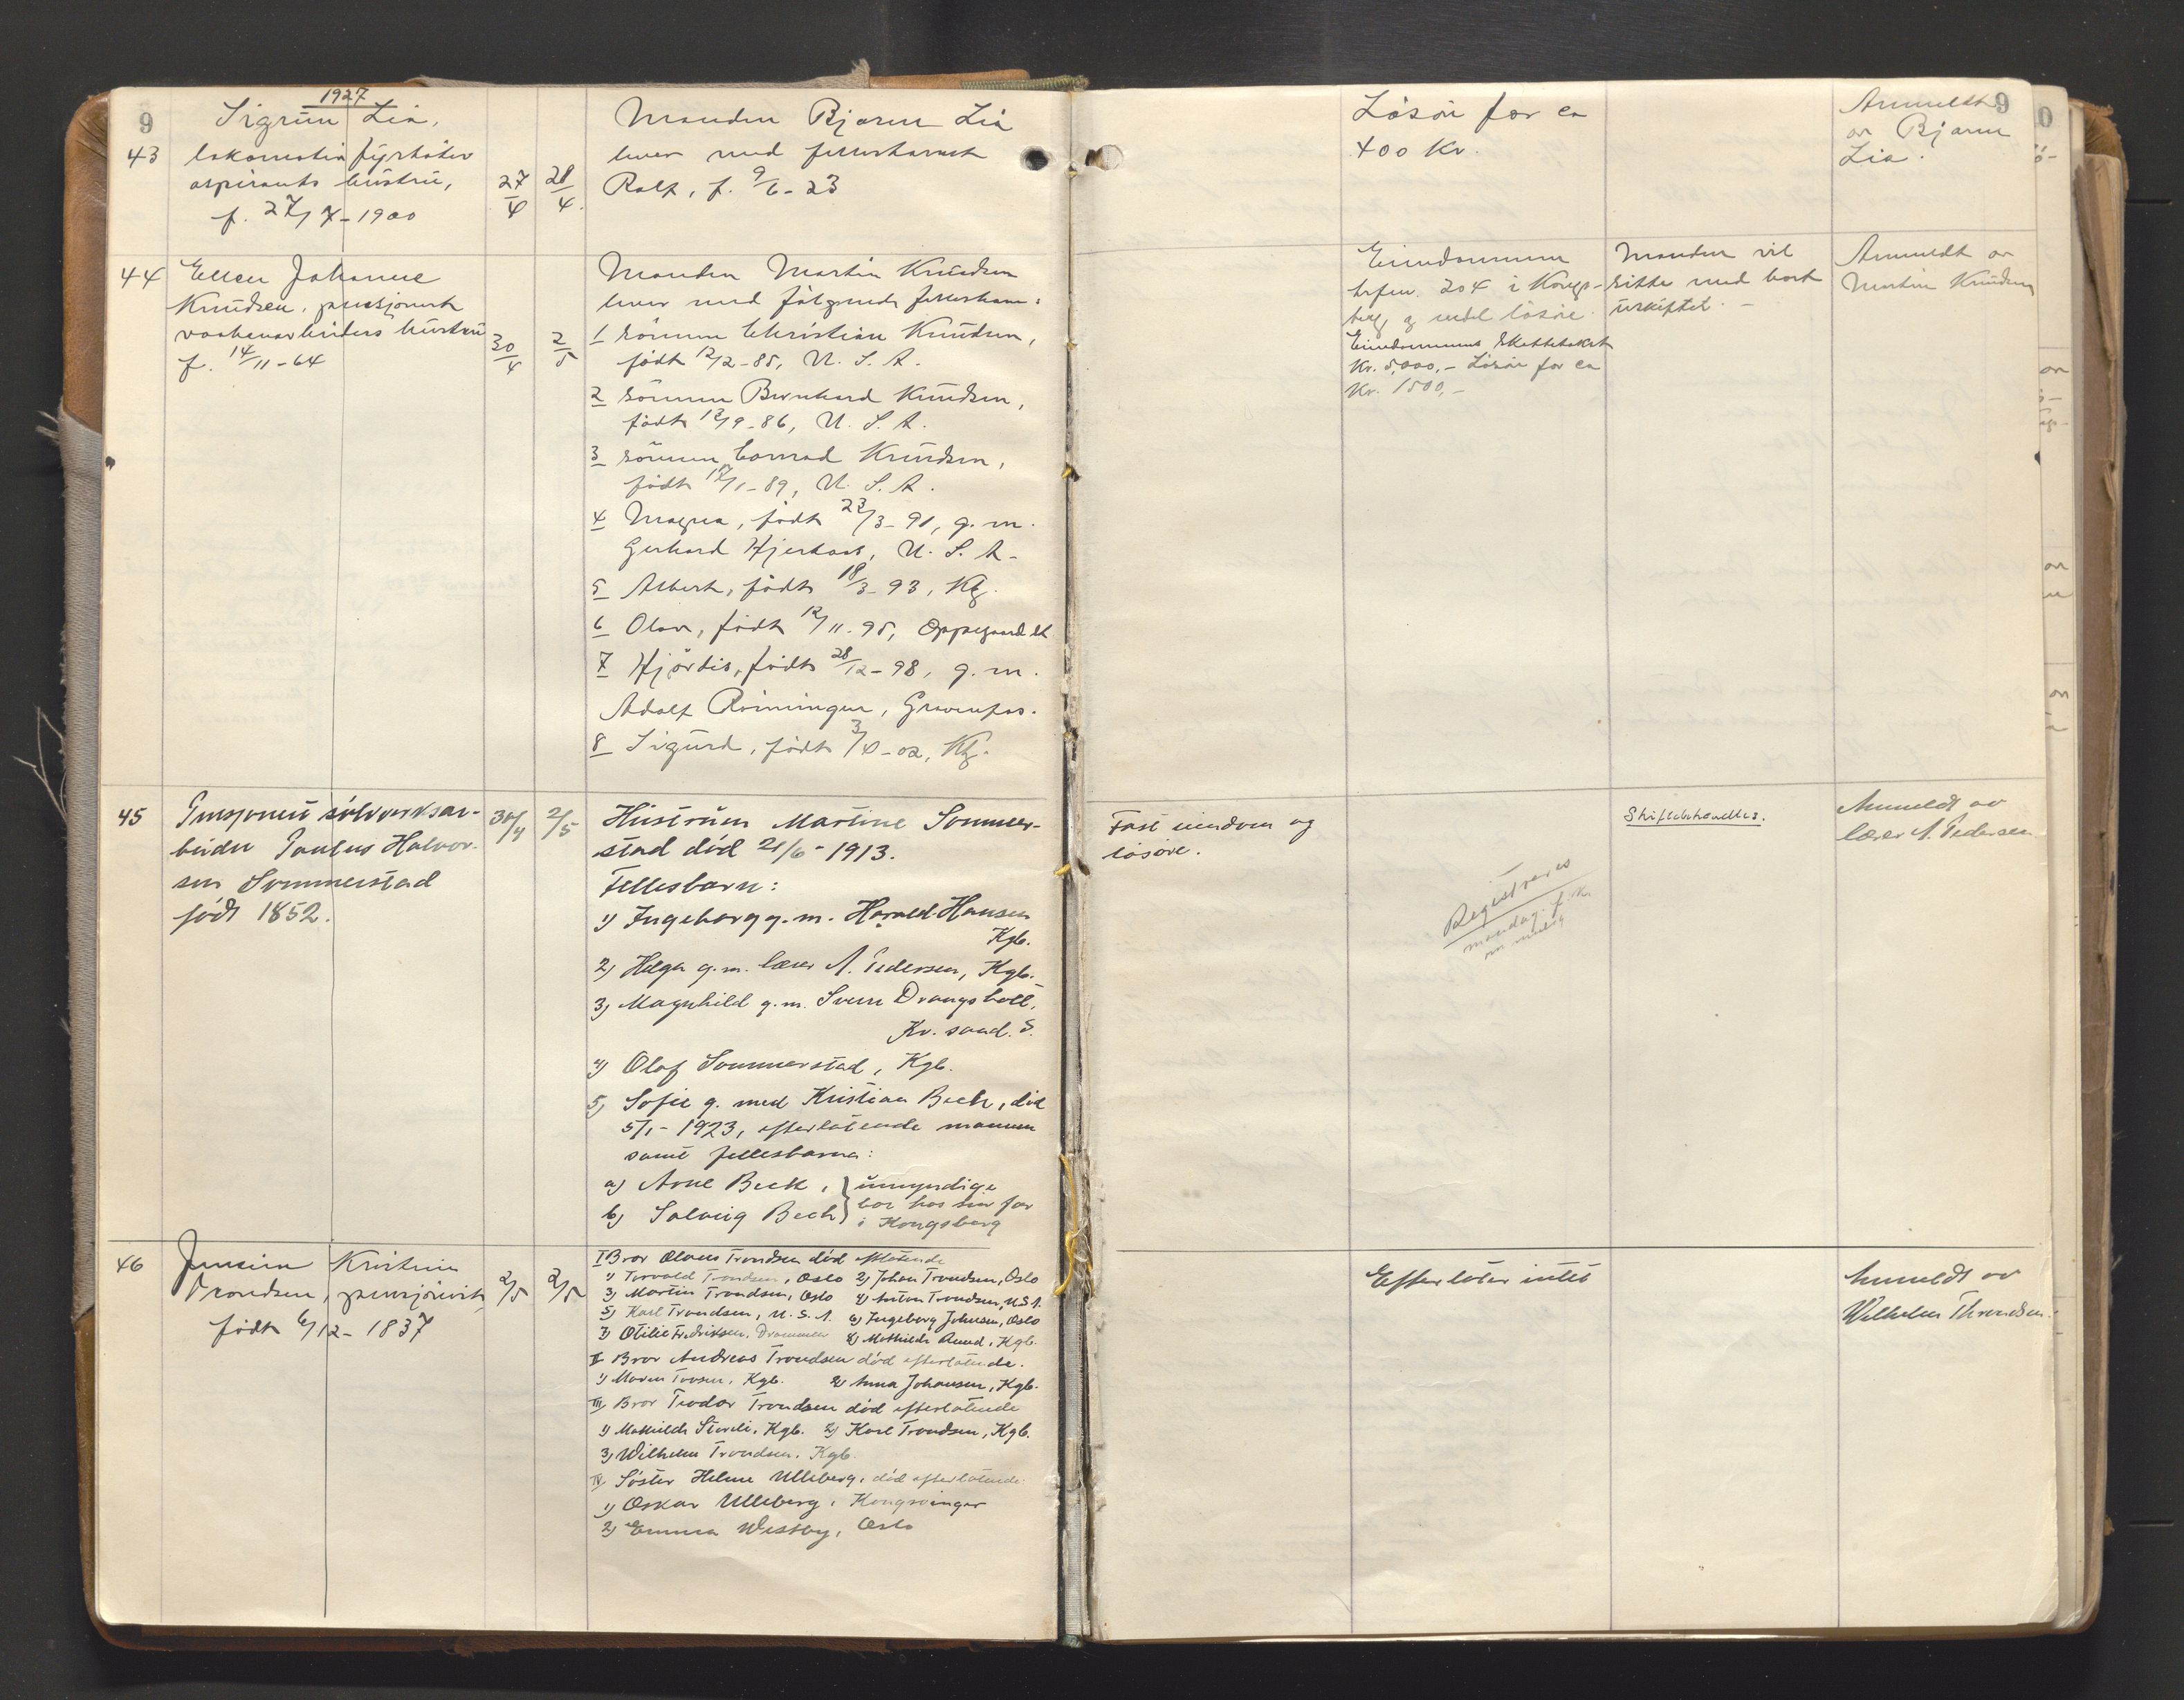 1927
9
43
Sigrun Lia,
lokomotivfyrbøter
aspirants hustru,
f. 27/7-1900
27/4
28/4
Manden Bjarne Lia
lever med fellesbarnet
Ralf, f. 9/6-23
Løsøre for ca
400 Kr.
Anmeldt
av Bjarne
Lia.
9
44
Ellen Johanne
Knudsen, pensjonert
vaabenarbeiders hustru
f. 14/11-64
30/4
2/5
Manden Martin Knudsen
lever med følgende fellesbarn:
1 sønnen Christian Knudsen,
født 12/2-85, U.S.A.
2 sønnen Bernhard Knudsen,
født 12/9-86, U.S.A.
3 sønnen Conrad Knudsen,
født 12/1-89, U.S.A.
4 Magna, født 23/3-91, g.m.
Gerhard, U.S.A.
5 Albert, født 18/3-93, Kbg.
6 Olav, født 12/11-95, Oppegaard st
7 Hjördis, født 28/12-98, g.m.
Adolf, Gravenfos.
8 Sigurd, født 3/4-02, Kbg.
Eiendommen
brfnr. 204 i Kongs-
berg og endel løsøre.
Eiendommens Skattetakst
Kr. 5,000,- Løsøre for ca
Kr. 1500,-
Manden vil
sitte med boet
uskiftet.-
Anmeldt av
Martin Knudsen
45
Pensjonert sølvverksar-
beider Paulus Halvor-
sen Sommerstad
født 1852.
30/4
2/5
Hustruen Martine Sommer-
stad død 21/6-1913.
Fellesbarn:
1) Ingeborg g.m. Harald Hansen
Kgb.
2) Helga g.m. lærer A. Pedersen, Kgb.
3) Magnhild g.m. Sverre Drangsholt,
Kr. sand. S.
4) Olaf Sommerstad, Kgb.
5) Sofie g. med Kristian Bech, død
5/1-1923, efterlatende mannen
samt fellesbarna:
a) Arne Bech, } umyndige
b) Solveig Bech } bor hos sin far
i Kongsberg
Fast eiendom og
løsøre.
Registreres
mandag f.m.
om mulig
Skiftebehandles.
Anmeldt av
lærer A. Pedersen
46
Jensine Kristine
Trondsen, pensjonist,
født 6/12-1837
2/5
2/5
I Bror Olaus Trondsen død efterlatende
1) Torvald Trondsen, Oslo 2) Johan Trondsen, Oslo
3) Martin Trondsen, Oslo 4) Anton Trondsen, U.S.A.
5) Karl Trondsen, U.S.A. 6) Ingeborg Johnsen, Oslo
7) Otilie Fredriksen, Drammen 8) Mathilde Ruud, Kgb.
II Bror Andreas Trondsen død efterlatende.
1) Maren, Kgb. 2) Anna Johansen, Kgb.
III Bror Teodor Trondsen død efterlatende
1) Mathilde, Kgb. 2) Karl Trondsen, Kgb.
3) Wilhelm Trondsen, Kgb.
IV Søster Helene Ulleberg, død efterlatende
1) Oskar Ulleberg, Kongsvinger
2) Emma Westby, Oslo
Efterlater intet
Anmeldt av
Wilhelm Throndsen.